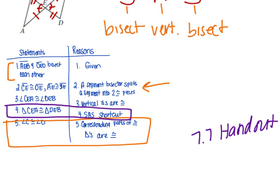 A
D
bisect vert. bisect
Statements Reasons
1. Given
each other
2. A segment bisector splits
a segment into 2 ≅ pieces
3. ∠CEA ≅ ∠DEB 3. Vertical ∠s are ≅
4. △CEA ≅ △DEB 4. SAS shortcut
5. ∠C ≅ ∠D 5. Corresponding parts of ≅
△s are ≅
7.7 Handout